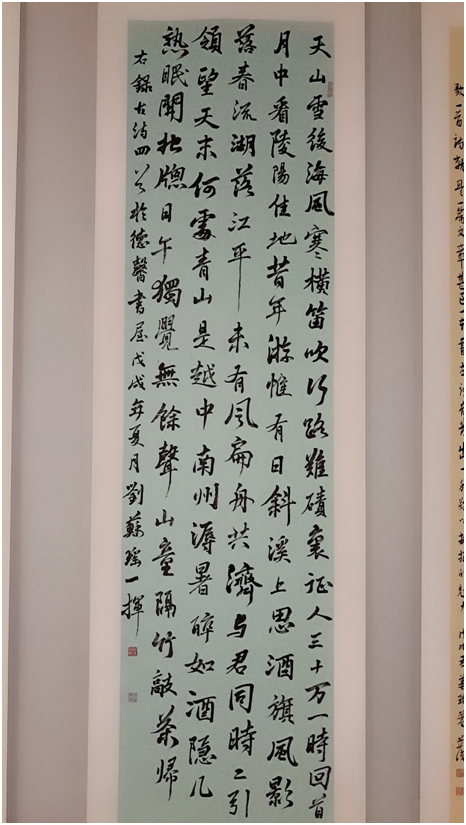 天山雪後海風寒橫笛吹行路難磧裏征人三十万一時回首
月中看陵陽佳地昔年游惟有日斜溪上思酒旗風影
落春流湖落江平未有風扁舟共濟与君同時〻引
領望天末何處青山是越中南州溽暑醉如酒隱几
熟眠開北牖日午獨覺無餘聲山童隔竹敲茶歸
右錄古詩四首於德馨書屋戊戌年夏月劉蘇瑤一揮